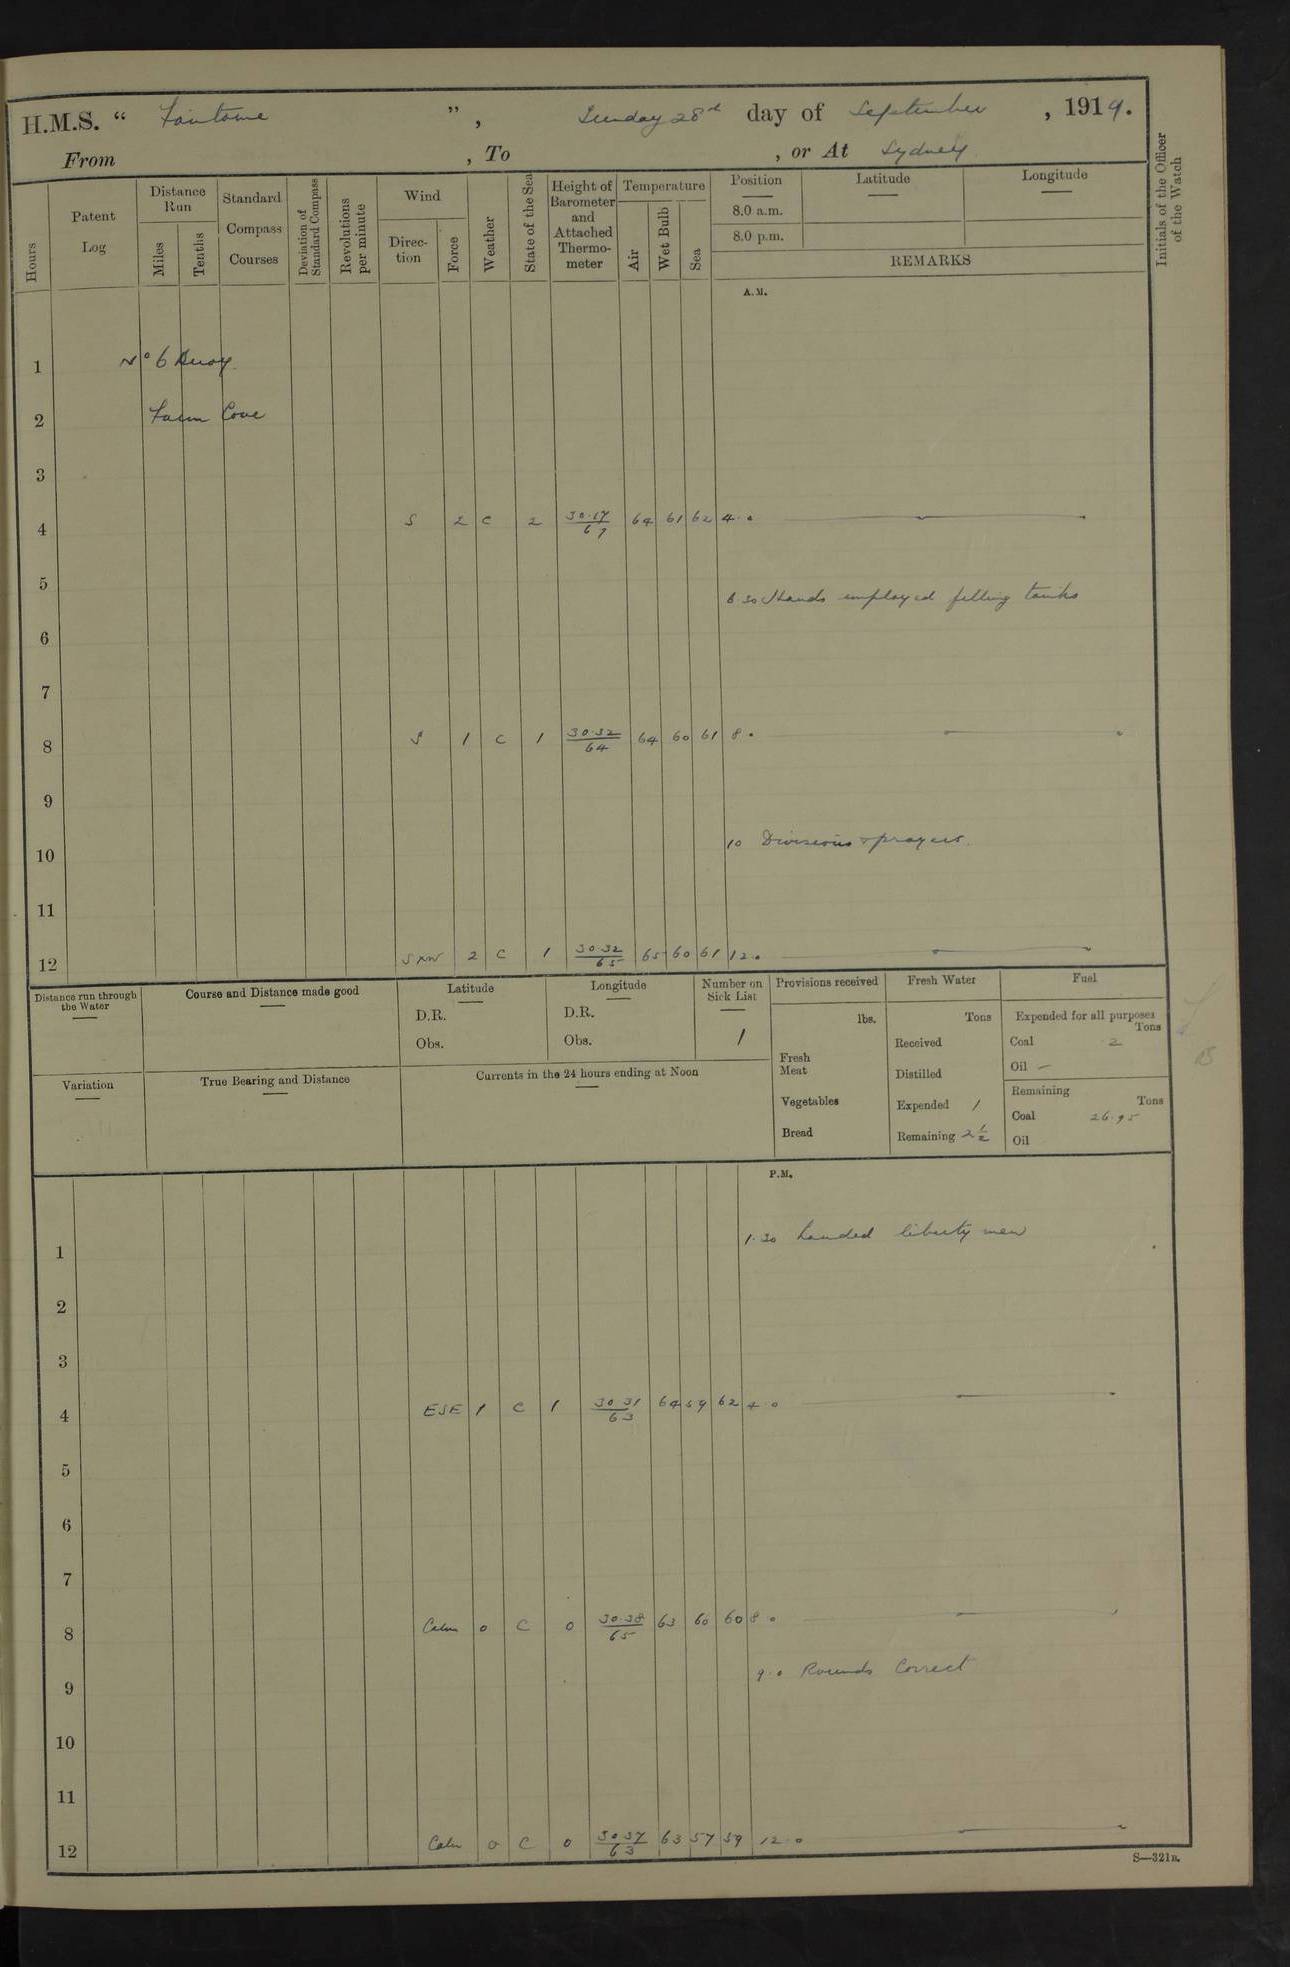 H.M.S. “ Fantome ”, Sunday 28th day of September, 1919.
From , To , or At Sydney
Hours
Patent Log
Distance Run
Miles
Tenths
Standard Compass Courses
Deviation of Standard Compass
Revolutions per minute
Wind
Direction
Force
Weather
State of the Sea
Height of Barometer and Attached Thermometer
Temperature
Air
Wet Bulb
Sea
Position
8.0 a.m.
8.0 p.m.
Latitude
Longitude
REMARKS
Initials of the Officer of the Watch
A.M.
1 No 6 Buoy
2 Farm Cove
3
4 S 2 C 2 30.17/67 64 61 62 4.0
5
6.30 Hands employed filling tanks
6
7
8 S 1 C 1 30.32/64 64 60 61 8.
9
10 Divisions & prayers.
10
11
12 SxW 2 C 1 30.32/65 65 60 61 12.0
Distance run through the Water
Course and Distance made good
Latitude
D.R.
Obs.
Longitude
D.R.
Obs.
Number on Sick List
1
Provisions received
lbs.
Fresh Meat
Vegetables
Bread
Fresh Water
Tons
Received
Distilled
Expended 1
Remaining 2½
Fuel
Expended for all purposes
Tons
Coal 2
Oil —
Remaining
Tons
Coal 26.95
Oil
Variation
True Bearing and Distance
Currents in the 24 hours ending at Noon
P.M.
1.30 Landed liberty men
1
2
3
4 ESE 1 C 1 30 31/63 64 59 62 4.0
5
6
7
8 Calm 0 C 0 30.38/65 63 60 60 8.0
9.0 Rounds Correct
9
10
11
12 Calm 0 C 0 30 37/63 63 57 59 12.0
S—321B.